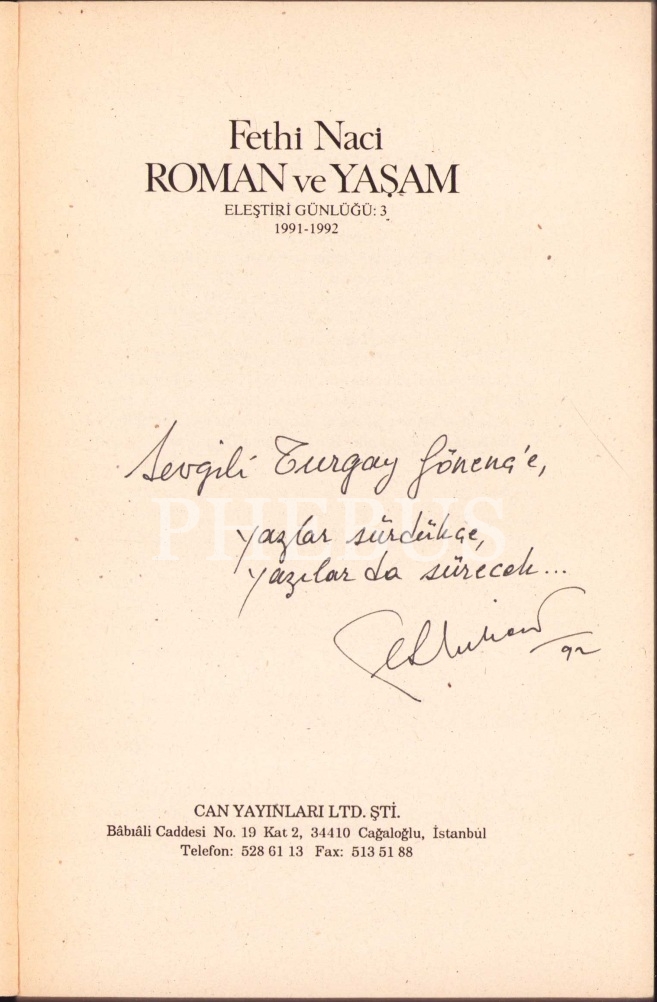 Fethi Naci
ROMAN ve YAŞAM
ELEŞTİRİ GÜNLÜĞÜ: 3
1991-1992
Sevgili Turgay Gönenç'e,
PHEBUS
yazlar sürdükçe,
yazılar da sürecek...
92
CAN YAYINLARI LTD. ŞTİ.
Bâbıâli Caddesi No. 19 Kat 2, 34410 Cağaloğlu, İstanbul
Telefon: 528 61 13 Fax: 513 51 88